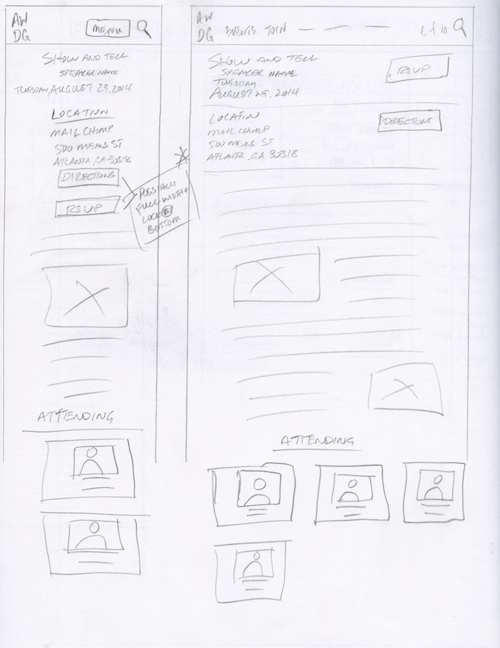 AW
DG
MENU
SHOW AND TELL
SPEAKER NAME
TUESDAY AUGUST 29, 2014
LOCATION
MAILCHIMP
500 MEANS ST
ATLANTA, GA 30318
DIRECTIONS
RSVP
POSSIBLY
FULL WIDTH +
LOCK @
BOTTOM
ATTENDING
AW
DG
EVENTS JOIN
SHOW AND TELL
SPEAKER NAME
TUESDAY
AUGUST 29, 2014
RSVP
LOCATION
MAILCHIMP
500 MEANS ST
ATLANTA, GA 30318
DIRECTIONS
ATTENDING